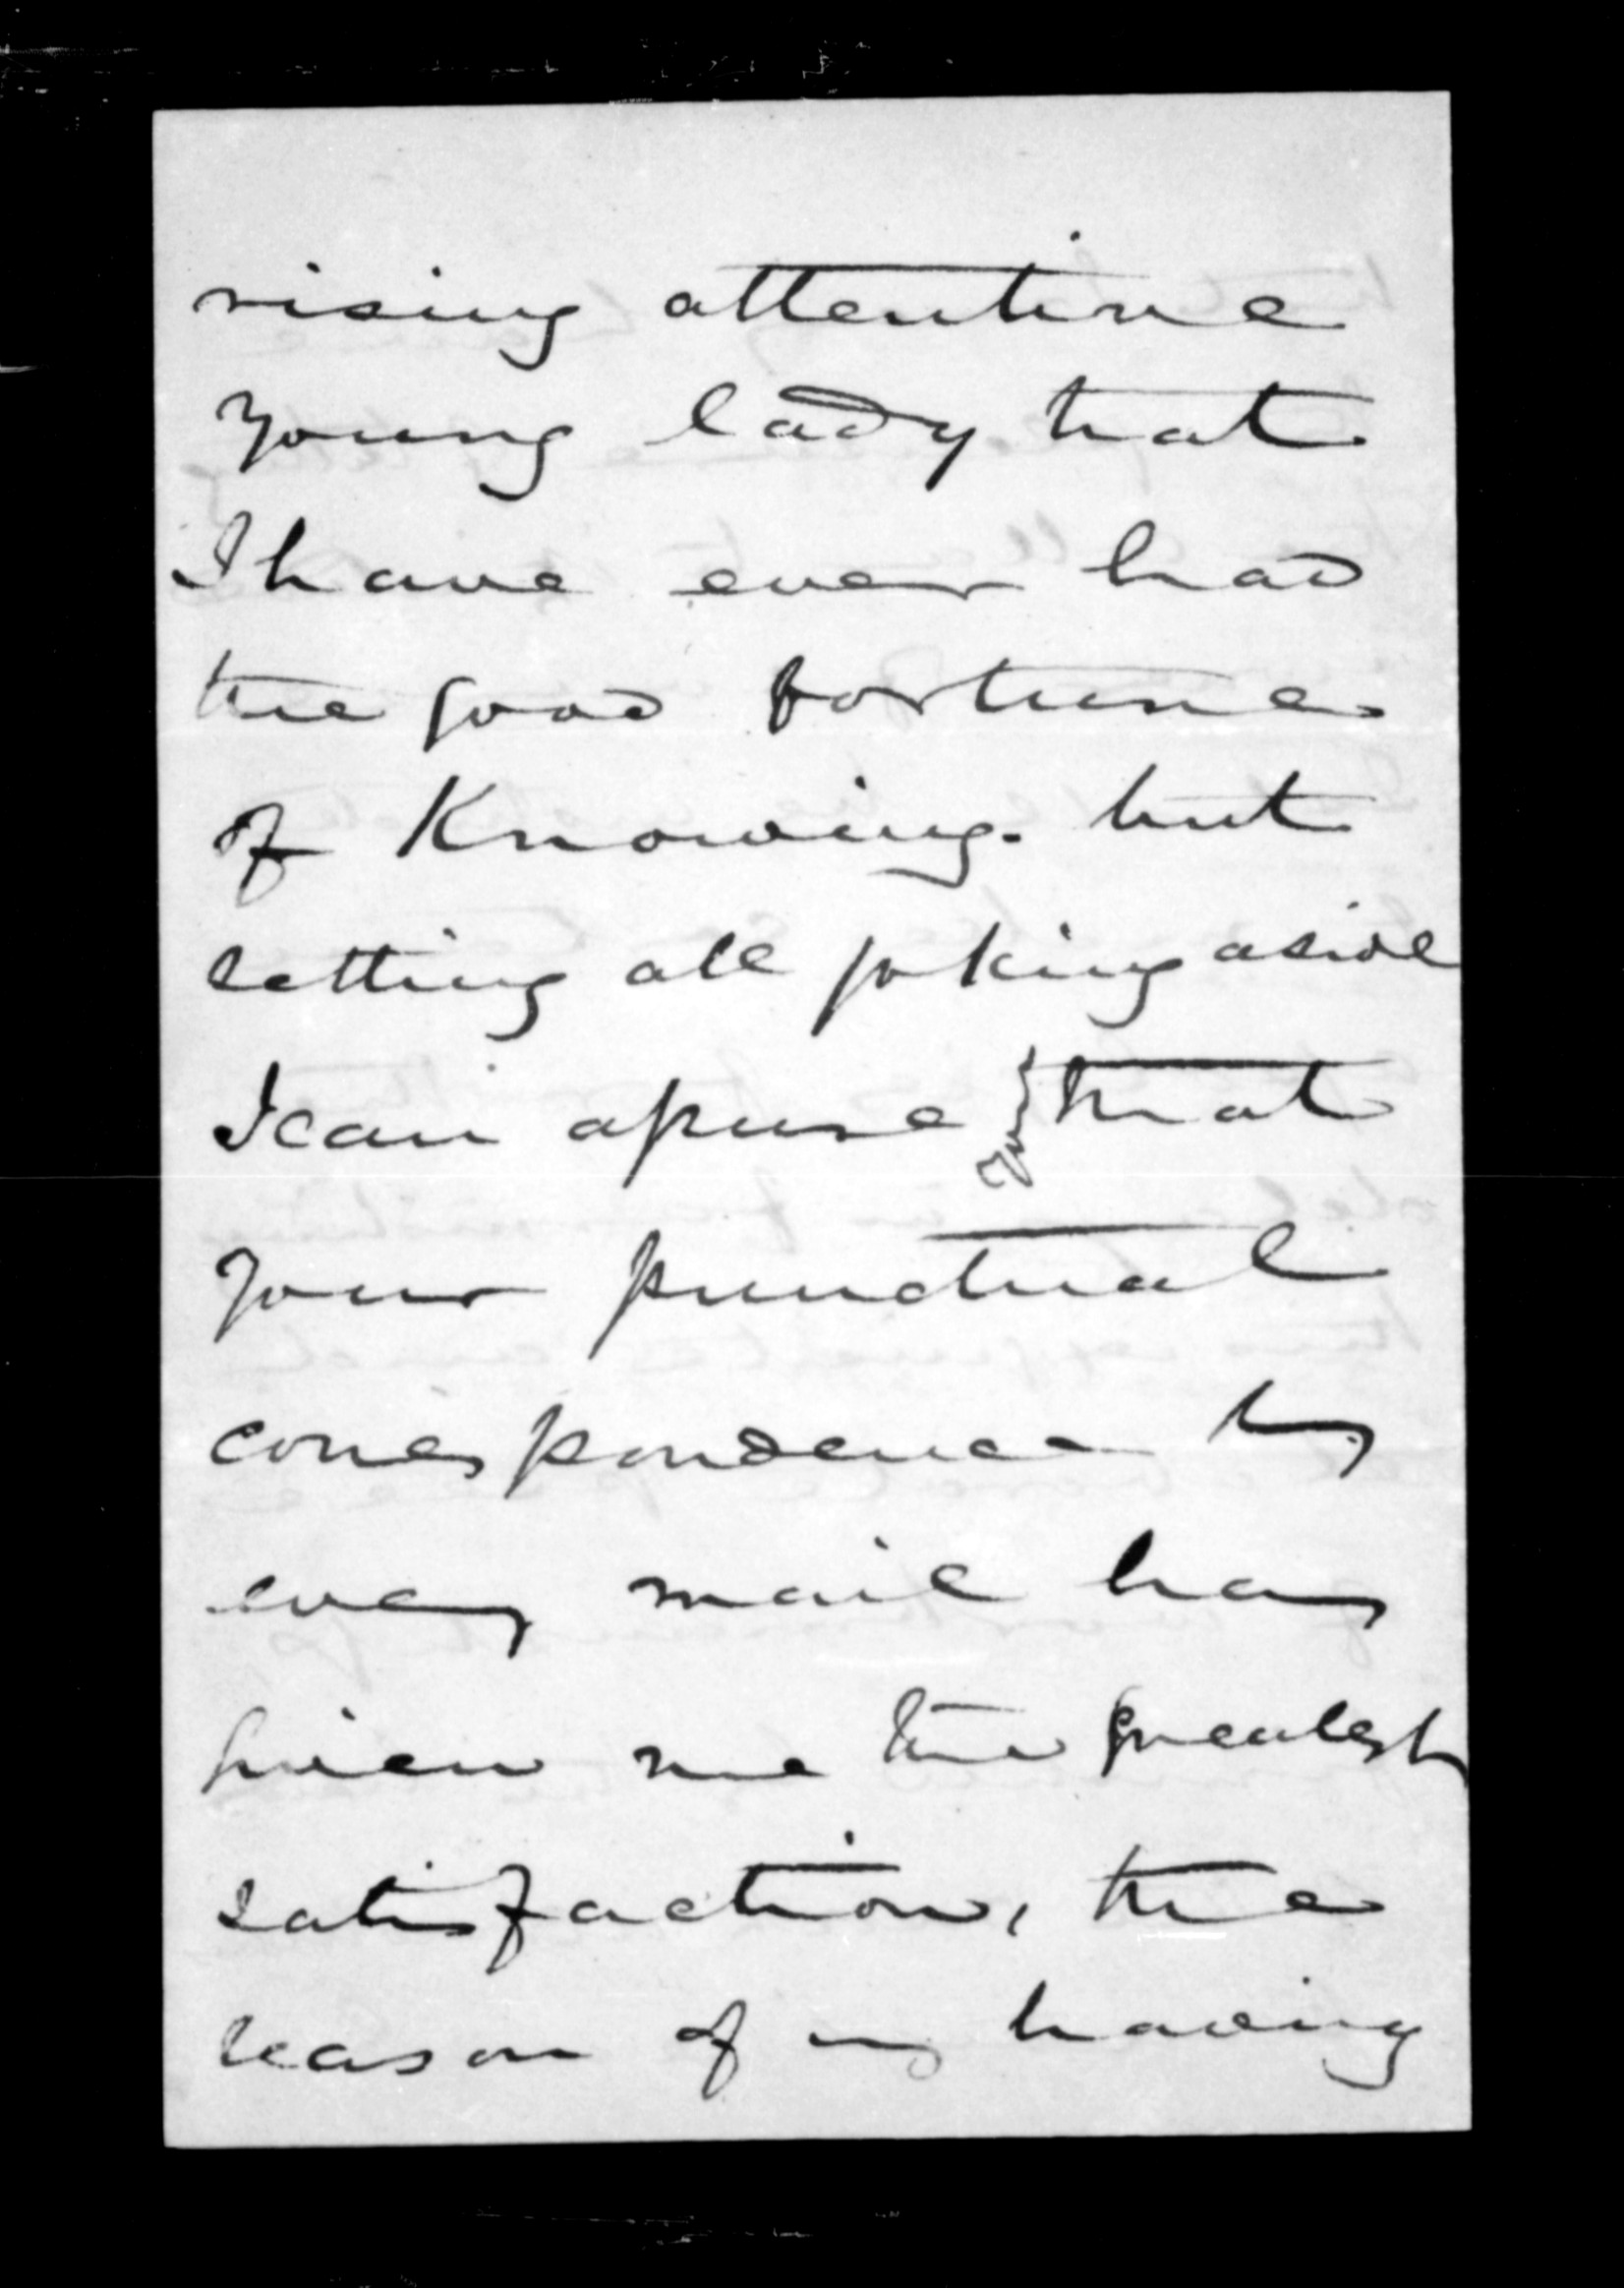 rising attentive
young lady that
I have ever had
the good fortune
of Knowing. but
setting all joking aside
I can assure you that
your punctual
correspondence by
every mail has
given me the greatest
satisfaction, the
reason of my having